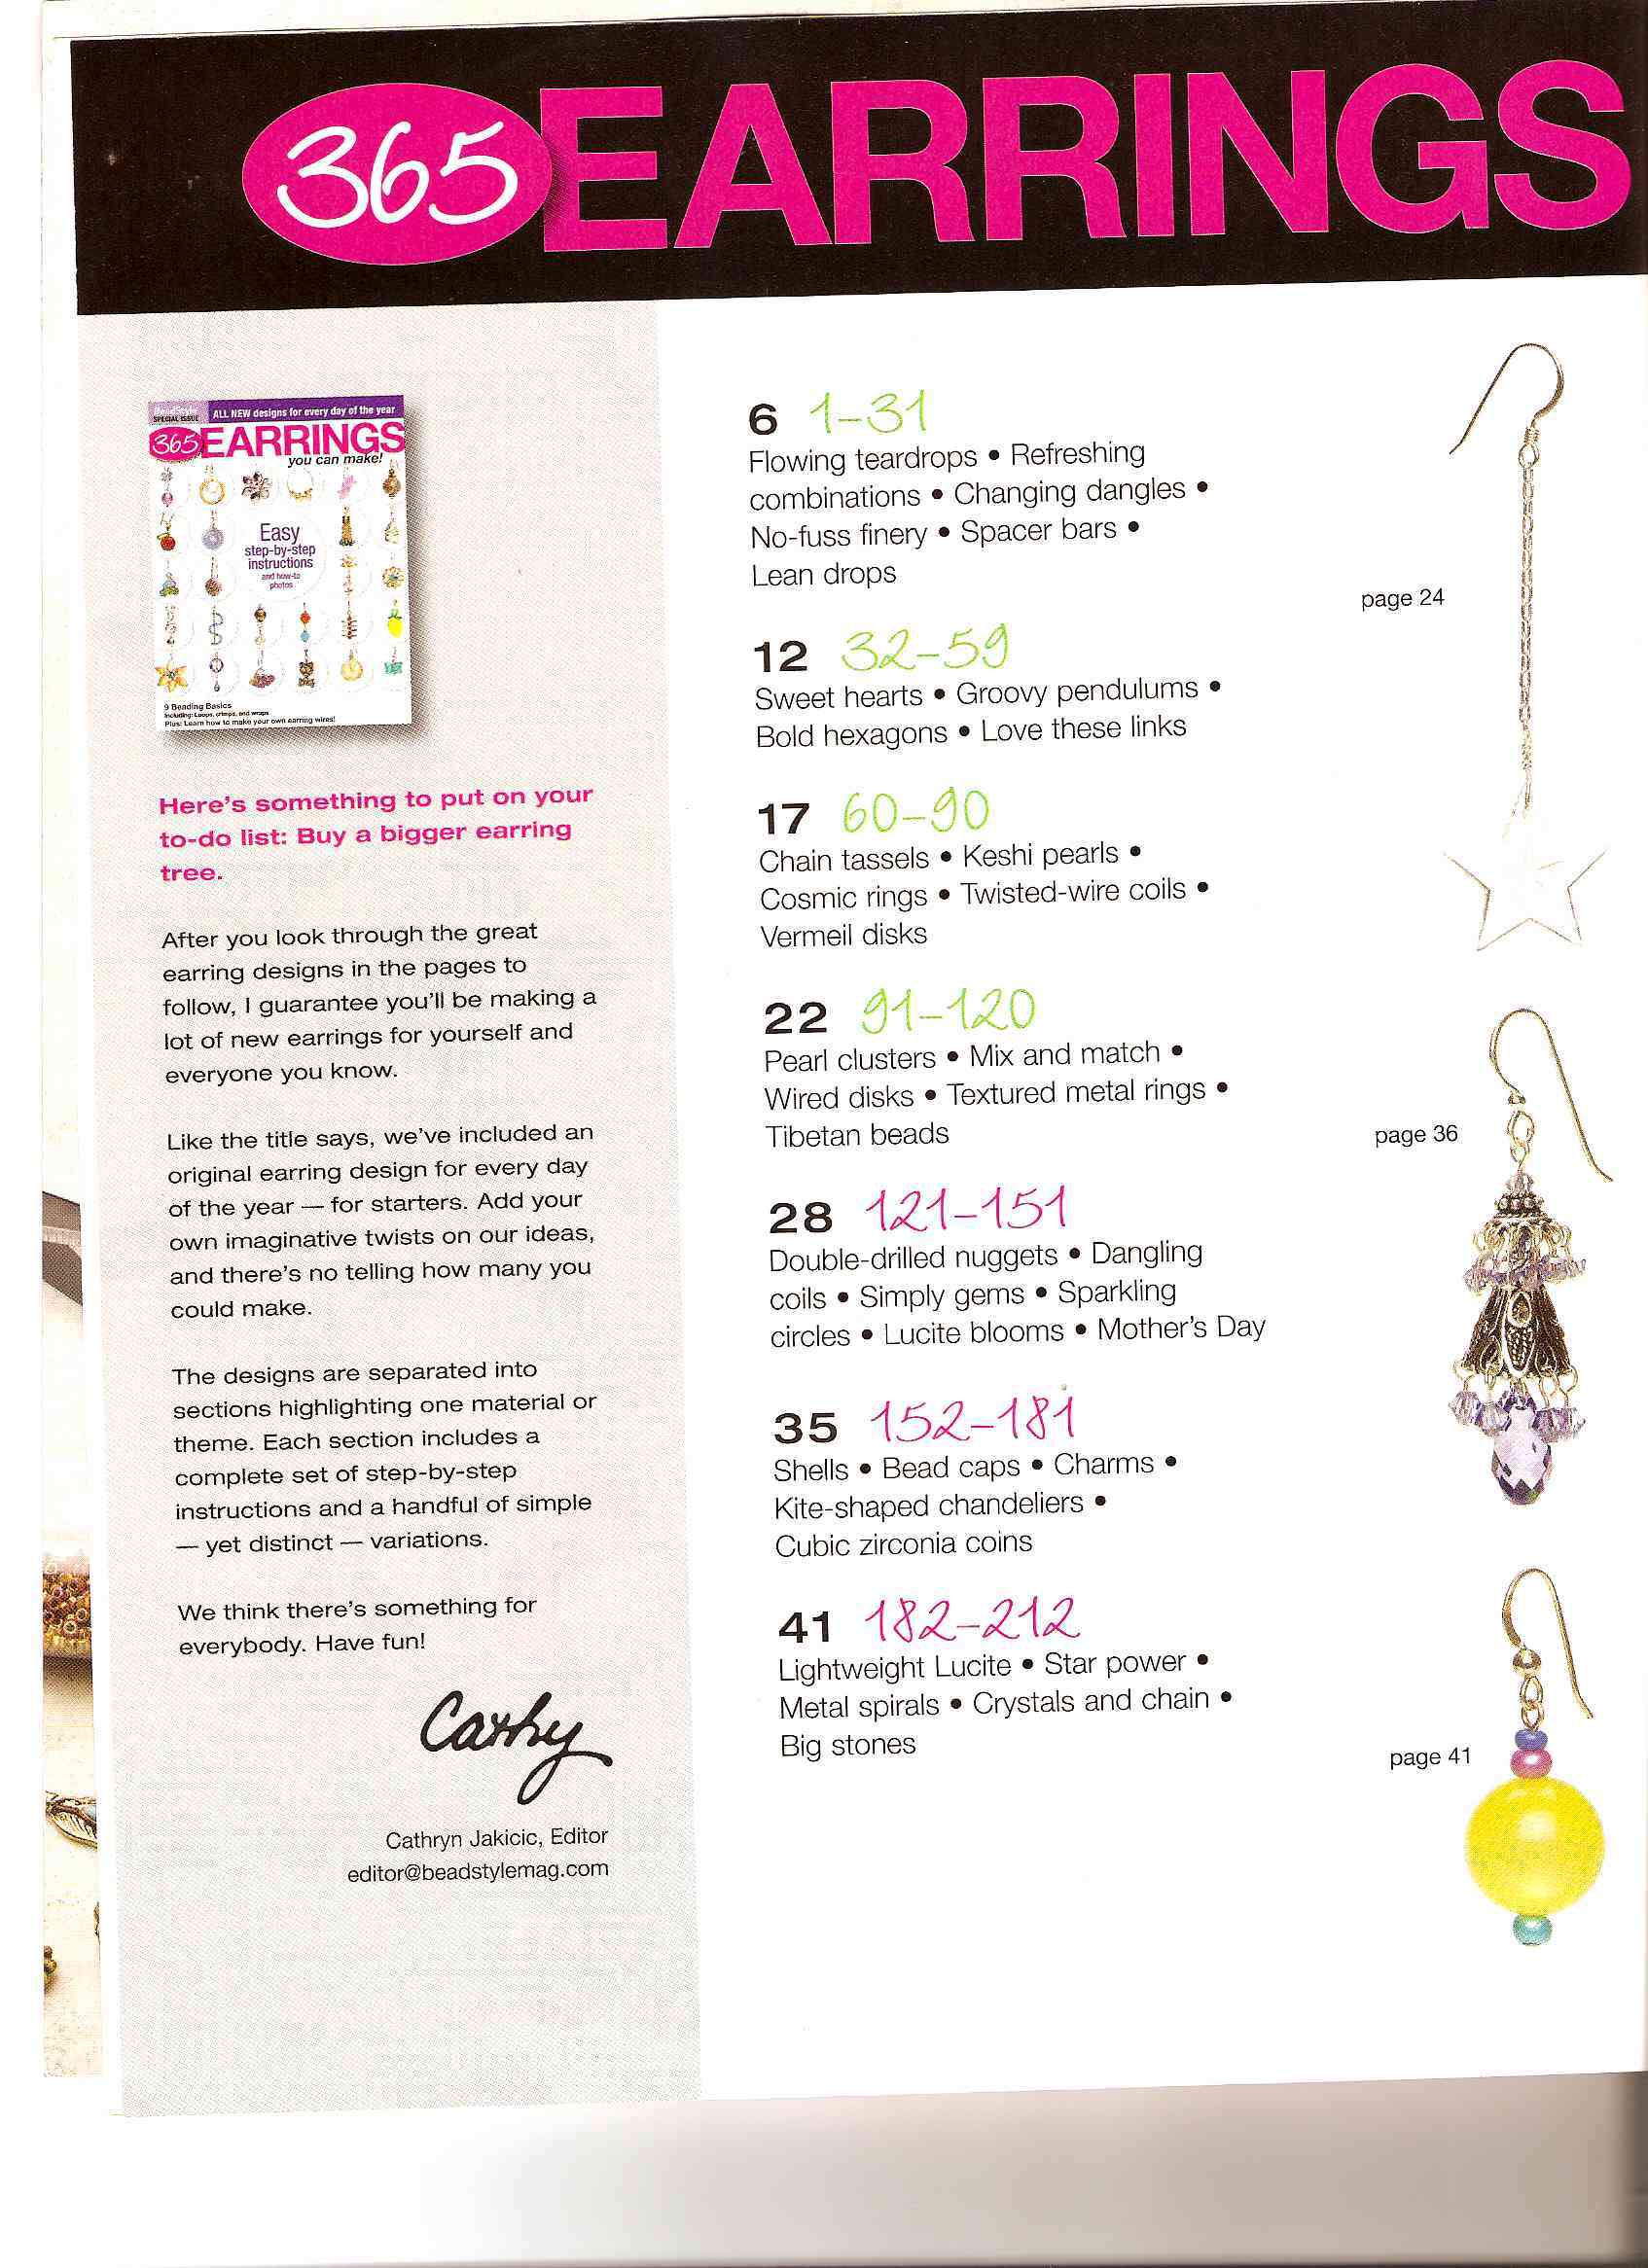 365 EARRINGS
BeadStyle
SPECIAL ISSUE
ALL NEW designs for every day of the year
365 EARRINGS
you can make!
Easy
step-by-step
instructions
and how-to
photos
9 Beading Basics
Including: Loops, crimps, and wraps
Plus: Learn how to make your own earring wires!
Here's something to put on your
to-do list: Buy a bigger earring
tree.
After you look through the great
earring designs in the pages to
follow, I guarantee you'll be making a
lot of new earrings for yourself and
everyone you know.
Like the title says, we've included an
original earring design for every day
of the year — for starters. Add your
own imaginative twists on our ideas,
and there's no telling how many you
could make.
The designs are separated into
sections highlighting one material or
theme. Each section includes a
complete set of step-by-step
instructions and a handful of simple
— yet distinct — variations.
We think there's something for
everybody. Have fun!
Cathy
Cathryn Jakicic, Editor
editor@beadstylemag.com
6 1–31
Flowing teardrops • Refreshing
combinations • Changing dangles •
No-fuss finery • Spacer bars •
Lean drops
12 32–59
Sweet hearts • Groovy pendulums •
Bold hexagons • Love these links
17 60–90
Chain tassels • Keshi pearls •
Cosmic rings • Twisted-wire coils •
Vermeil disks
22 91–120
Pearl clusters • Mix and match •
Wired disks • Textured metal rings •
Tibetan beads
28 121–151
Double-drilled nuggets • Dangling
coils • Simply gems • Sparkling
circles • Lucite blooms • Mother's Day
35 152–181
Shells • Bead caps • Charms •
Kite-shaped chandeliers •
Cubic zirconia coins
41 182–212
Lightweight Lucite • Star power •
Metal spirals • Crystals and chain •
Big stones
page 24
page 36
page 41